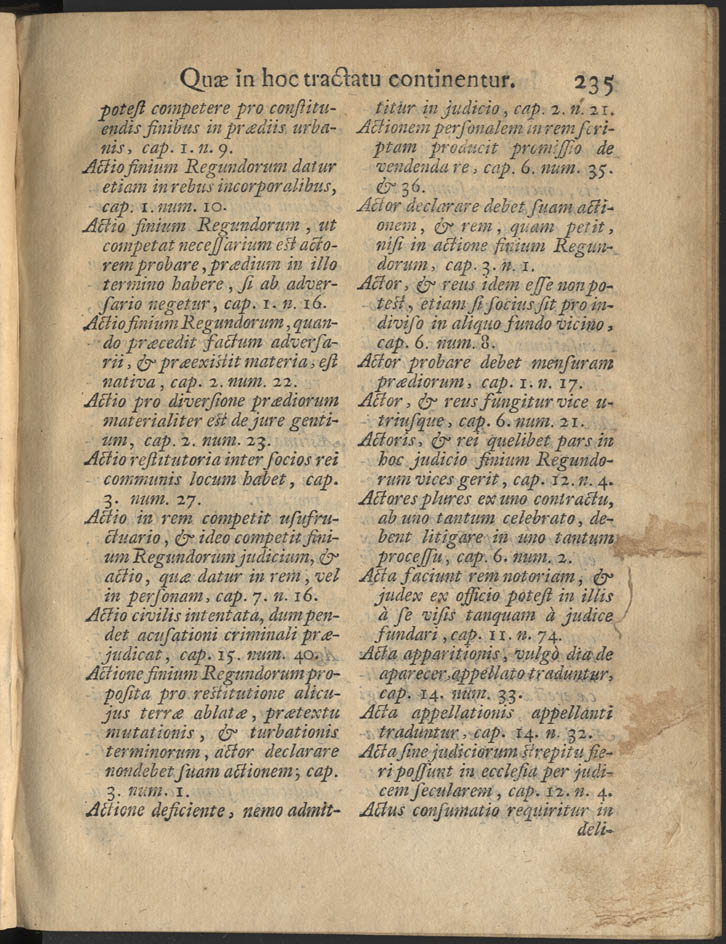 Quæ in hoc tractatu continentur. 235
potest competere pro constitu-
endis finibus in prædiis urba-
nis, cap. 1. n. 9.
Actio finium Regundorum datur
etiam in rebus incorporalibus,
cap. 1. num. 10.
Actio finium Regundorum, ut
competat necessarium est acto-
rem probare, prædium in illo
termino habere, si ab adver-
sario negetur, cap. 1. n. 16.
Actio finium Regundorum, quan-
do præcedit factum adversa-
rii, & præexistit materia, est
nativa, cap. 2. num. 22.
Actio pro diversione prædiorum
materialiter est de jure genti-
um, cap. 2. num. 23.
Actio restitutoria inter socios rei
communis locum habet, cap.
3. num. 27.
Actio in rem competit usufru-
ctuario, & ideo competit fini-
um Regundorum judicium, &
actio, quæ datur in rem, vel
in personam, cap. 7. n. 16.
Actio civilis intentata, dum pen-
det acusationi criminali præ-
judicat, cap. 15. num. 40.
Actione finium Regundorum pro-
posita pro restitutione alicu-
jus terræ ablatæ, prætextu
mutationis, & turbationis
terminorum, actor declarare
non debet suam actionem, cap.
3. num. 1.
Actione deficiente, nemo admit-
titur in judicio, cap. 2. n. 21.
Actionem personalem in rem scri-
ptam producit promissio de
vendenda re, cap. 6. num. 35.
& 36.
Actor declarare debet suam acti-
onem, & rem, quam petit,
nisi in actione finium Regun-
dorum, cap. 3. n. 1.
Actor, & reus idem esse non po-
test, etiam si socius sit pro in-
diviso in aliquo fundo vicino,
cap. 6. num. 8.
Actor probare debet mensuram
prædiorum, cap. 1. n. 17.
Actor, & reus fungitur vice u-
triusque, cap. 6. num. 21.
Actoris, & rei quelibet pars in
hoc judicio finium Regundo-
rum vices gerit, cap. 12. n. 4.
Actores plures ex uno contractu,
ab uno tantum celebrato, de-
bent litigare in uno tantum
processu, cap. 6. num. 2.
Acta faciunt rem notoriam, &
judex ex officio potest in illis
à se visis tanquam à judice
fundari, cap. 11. n. 74.
Acta apparitionis, vulgò dia de
aparecer, appellato traduntur,
cap. 14. num. 33.
Acta appellationis appellanti
traduntur, cap. 14. n. 32.
Acta sine judiciorum strepitu fie-
ri possunt in ecclesia per judi-
cem secularem, cap. 12. n. 4.
Actus consumatio requiritur in
deli-